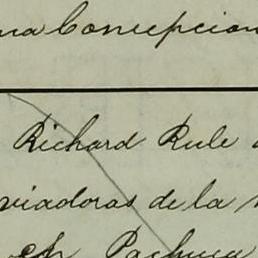 na Concepcion
Richard Rule
viadoras de la
en Pachuca